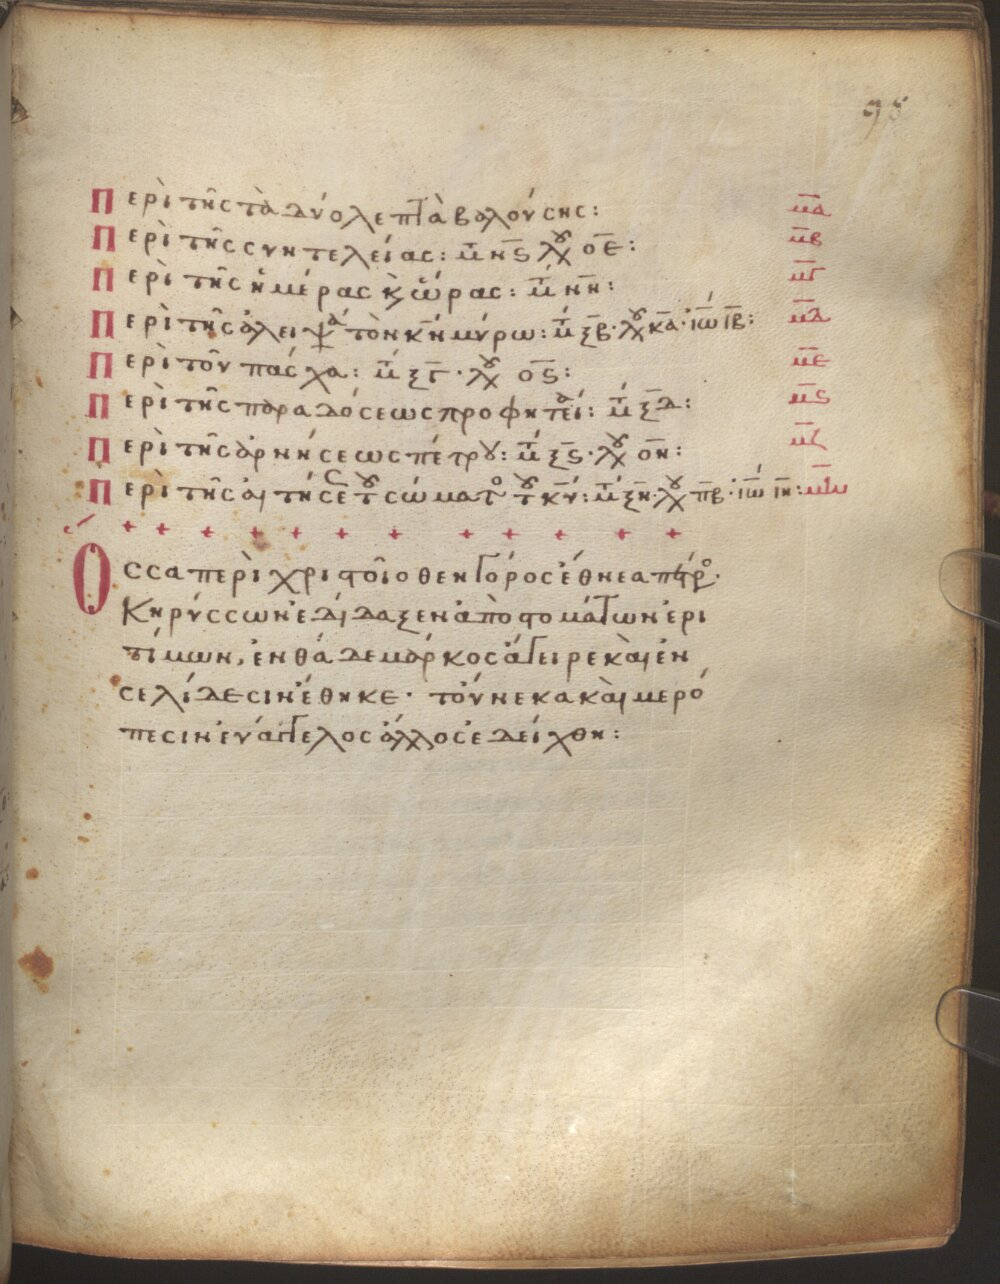 98
Περὶ τῆς τὰ δύο λεπτὰ βαλούσης: μα
Περὶ τῆς συντελείας: μ νς λου οε: μβ
Περὶ τῆς ἡμέρας κ ὥρας: μ νη: μγ
Περὶ τῆς ἀλειψά τὸν κν μύρω: μ ξβ· λου κα· ιω ιβ: μδ
Περὶ τοῦ πάσχα: μ ξγ· λου ος: με
Περὶ τῆς παραδόσεως προφητεί: μ ξδ: μς
Περὶ τῆς ἀρνήσεως πέτρου: μ ξς· λου οη: μζ
Περὶ τῆς αἰτήσε τοῦ σώματο τοῦ κυ: μ ξη· λου πβ· ιω ιη: μη
+ + + + + + + + + + +
Ὅσσα περὶ χριστοῖο θεηγόρος ἔθνεα πέτρο·
Κηρύσσων ἐδίδαξεν ἀπὸ στομάτων ἐρι
τίμων, ἐνθάδε μάρκος ἄγειρε καὶ ἐν
σελίδεσιν ἔθηκε· τοὔνεκα καὶ μερό
πεσιν εὐάγγελος ἄλλος ἐδείχθη: